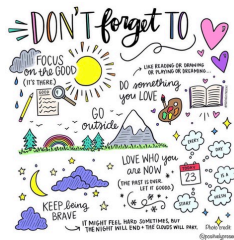 DON'T forget TO
FOCUS
on the GOOD
(IT'S THERE)
LIKE READING OR DRAWING
OR PLAYING OR DREAMING...
DO something
you LOVE
GO
outside
EVERY
DAY
IS A
WHAT
LOVE WHO you
are NOW
(THE PAST IS OVER.
LET IT GOOOO.)
23
KEEP being
BRAVE
IT MIGHT FEEL HARD SOMETIMES, BUT
THE NIGHT WILL END + THE CLOUDS WILL PART.
Photo credit